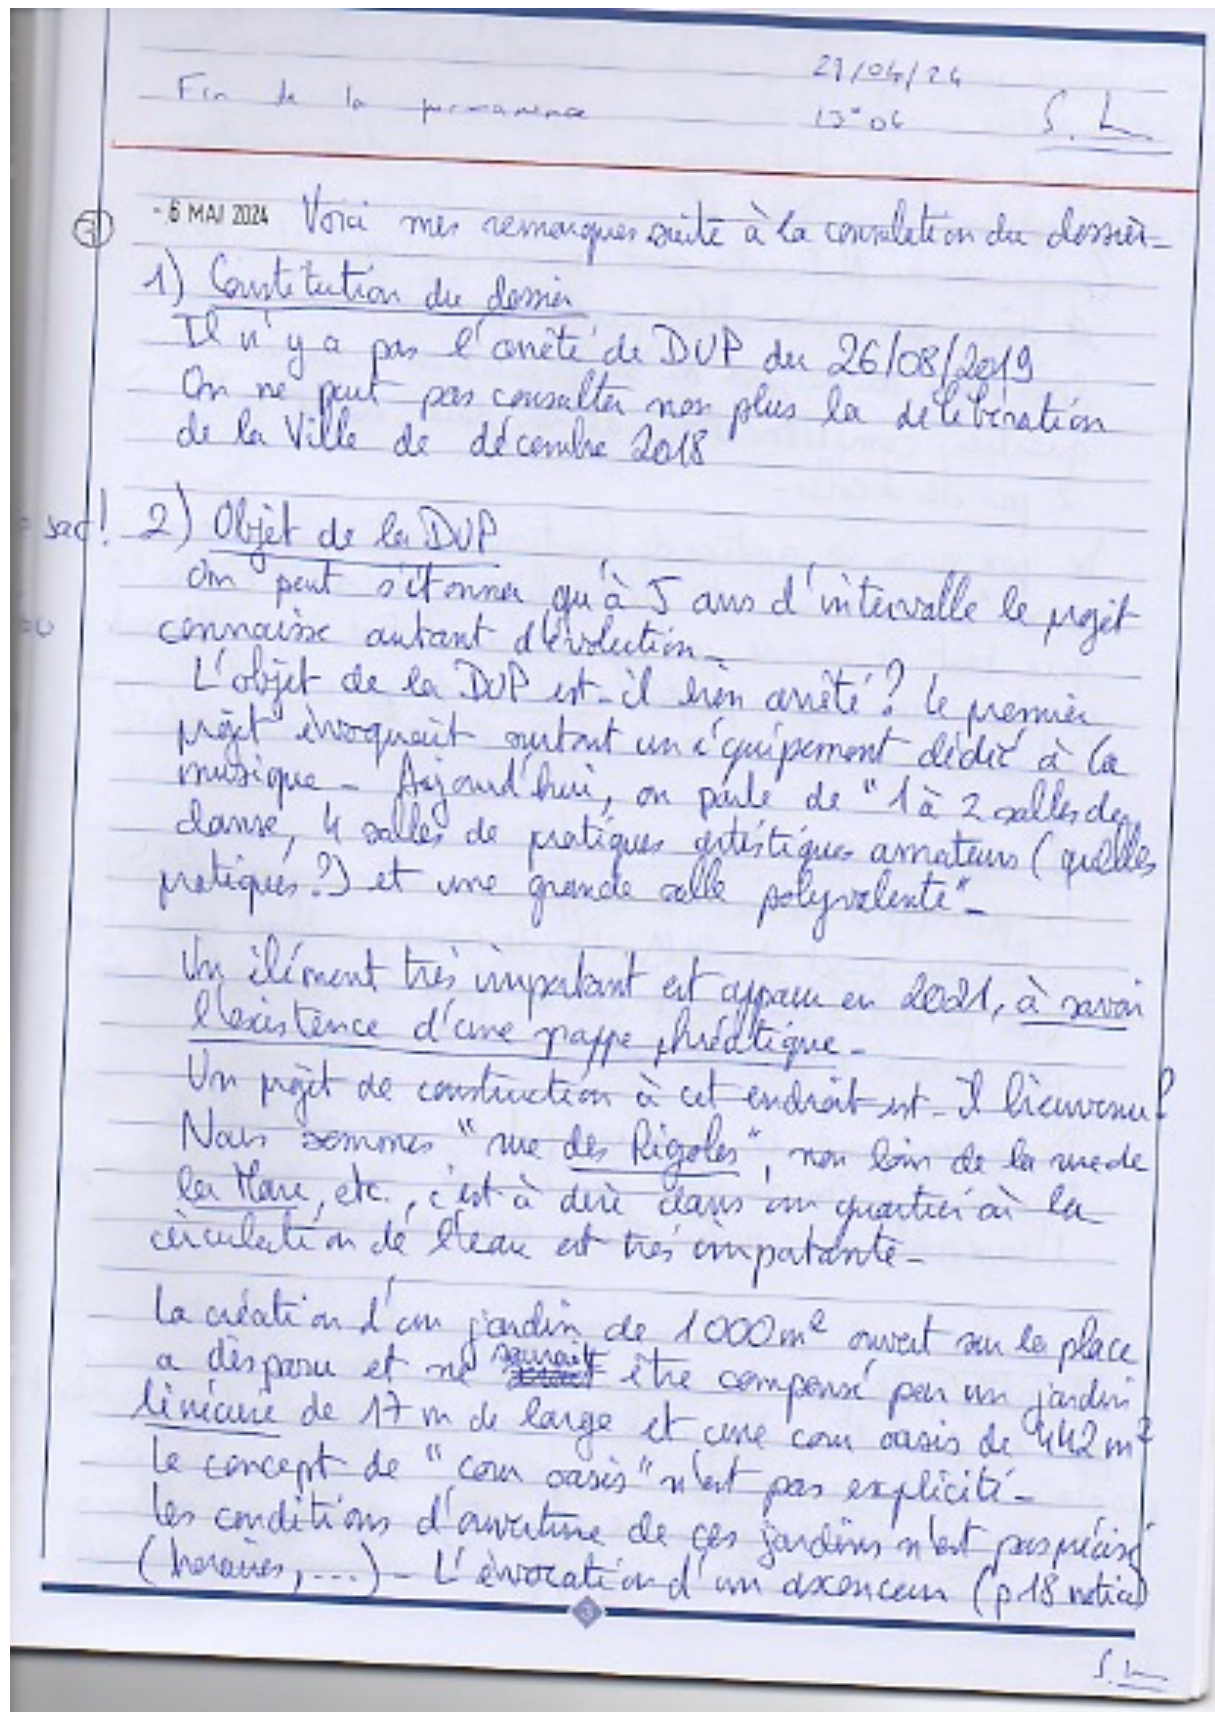 29/04/24
Fin de la permanence
S. L
③ - 6 MAI 2024 Voici mes remarques suite à la consultation du dossier -
1) Constitution du dossier
Il n'y a pas l'arrêté de DUP du 26/08/2019
On ne peut pas consulter non plus la délibération
de la Ville de décembre 2018
sac! 2) Objet de la DUP
On peut s'étonner qu'à 5 ans d'intervalle le projet
connaisse autant d'évolution -
L'objet de la DUP est-il bien arrêté ? Le premier
projet évoquait surtout un équipement dédié à la
musique - Aujourd'hui, on parle de "1 à 2 salles de
danse, 4 salles de pratiques artistiques amateurs (quelles
pratiques ?) et une grande salle polyvalente" -
Un élément très important est apparu en 2021, à savoir
l'existence d'une nappe phréatique -
Un projet de construction à cet endroit est-il bienvenu ?
Nous sommes "rue des Rigoles", non loin de la rue de
la Mare, etc., c'est à dire dans un quartier où la
circulation de l'eau est très importante -
La création d'un jardin de 1000 m2 ouvert sur la place
a disparu et ne saurait être compensé par un jardin
linéaire de 17 m de large et une cour oasis de 442 m2
Le concept de "cour oasis" n'est pas explicité -
Les conditions d'ouverture de ces jardins n'est pas précisé
(horaires, ...) - L'évocation d'un ascenceur (p 18 notice)
3
S. L